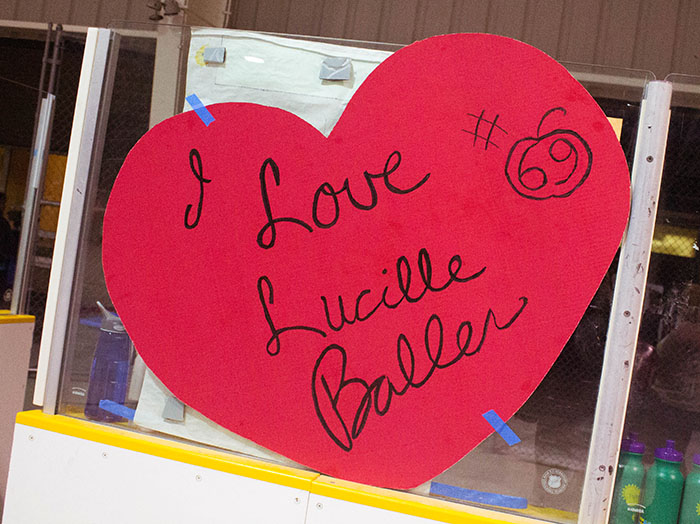 I Love
#69
Lucille
Baller